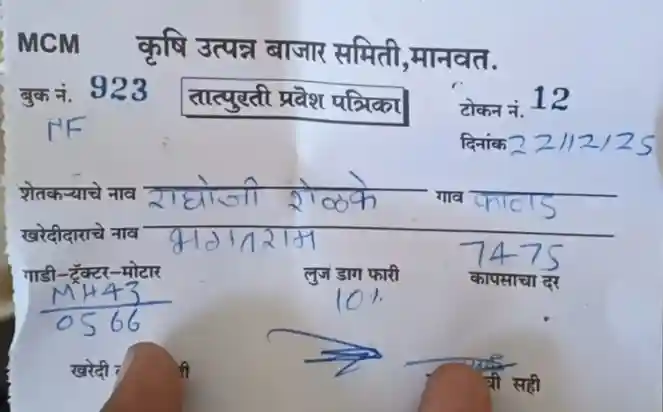 MCM कृषि उत्पन्न बाजार समिती,मानवत.
बुक नं. 923 तात्पुरती प्रवेश पत्रिका टोकन नं. 12
PF दिनांक 22/12/25
शेतकऱ्याचे नाव राघोजी शेळके गाव
खरेदीदाराचे नाव भगतराम
7475
गाडी-ट्रॅक्टर-मोटार लुज डाग फारी कापसाचा दर
MH43 10%
0566
खरेदी सही